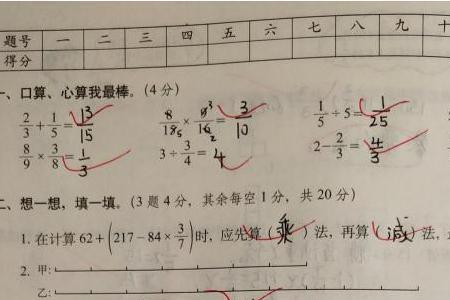 题号 一 二 三 四 五 六 七 八 九 十
得分
一、口算、心算我最棒。(4分)
2/3 + 1/5 = 13/15   8/15 × 9/16 = 3/10   1/5 ÷ 5 = 1/25
8/9 × 3/8 = 1/3   3 ÷ 3/4 = 4   2 - 2/3 = 4/3
二、想一想，填一填。(3题4分，其余每空1分，共20分)
1. 在计算62+(217-84×3/7)时，应先算(乘)法，再算(减)法，
2. 甲:
乙: